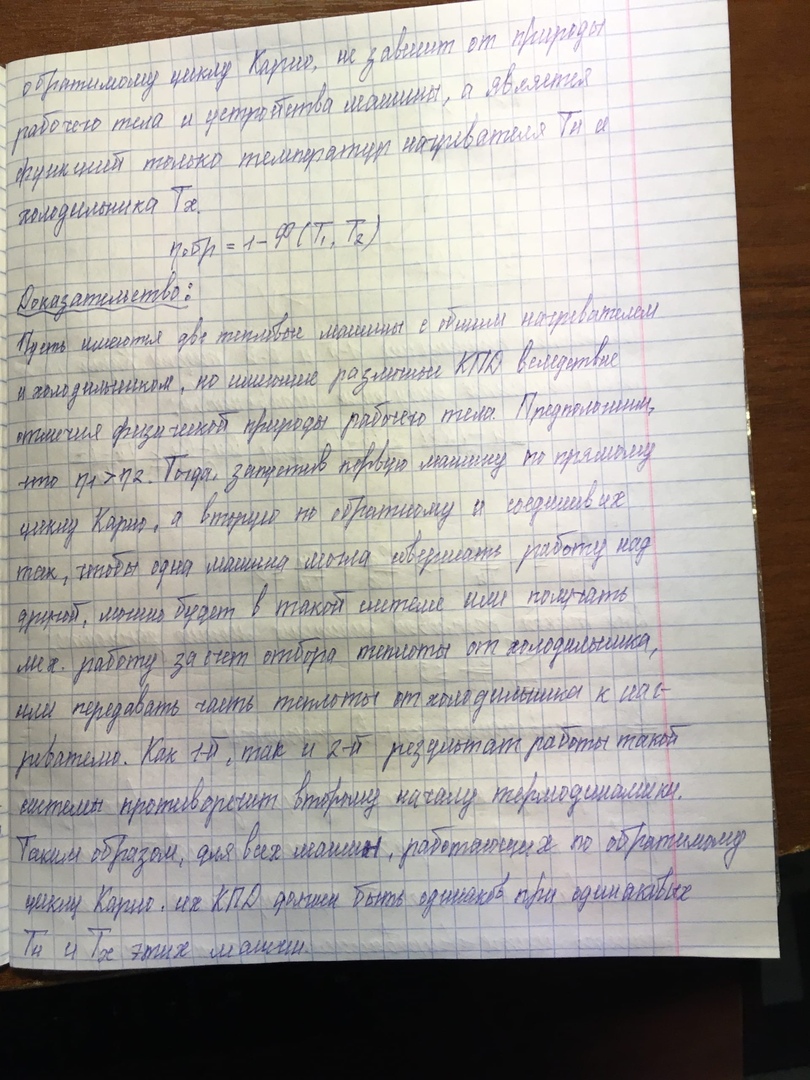 обратимому циклу Карно, не зависит от природы
рабочего тела и устройства машины, а является
функцией только температур нагревателя Тн и
холодильника Тх.
ηобр = 1 - Ф(T₁, T₂)
Доказательство:
Пусть имеются две тепловые машины с общим нагревателем
и холодильником, но имеющие различные КПД вследствие
отличия физической природы рабочего тела. Предположим,
что η₁ > η₂. Тогда, запустив первую машину по прямому
циклу Карно, а вторую по обратному и соединив их
так, чтобы одна машина могла совершать работу над
другой, можно будет в такой системе или получать
мех. работу за счет отбора теплоты от холодильника,
или передавать часть теплоты от холодильника к наг-
ревателю. Как 1-й, так и 2-й результат работы такой
системы противоречит второму началу термодинамики.
Таким образом, для всех машин, работающих по обратимому
циклу Карно, их КПД должен быть одинаков при одинаковых
Тн и Тх этих машин.